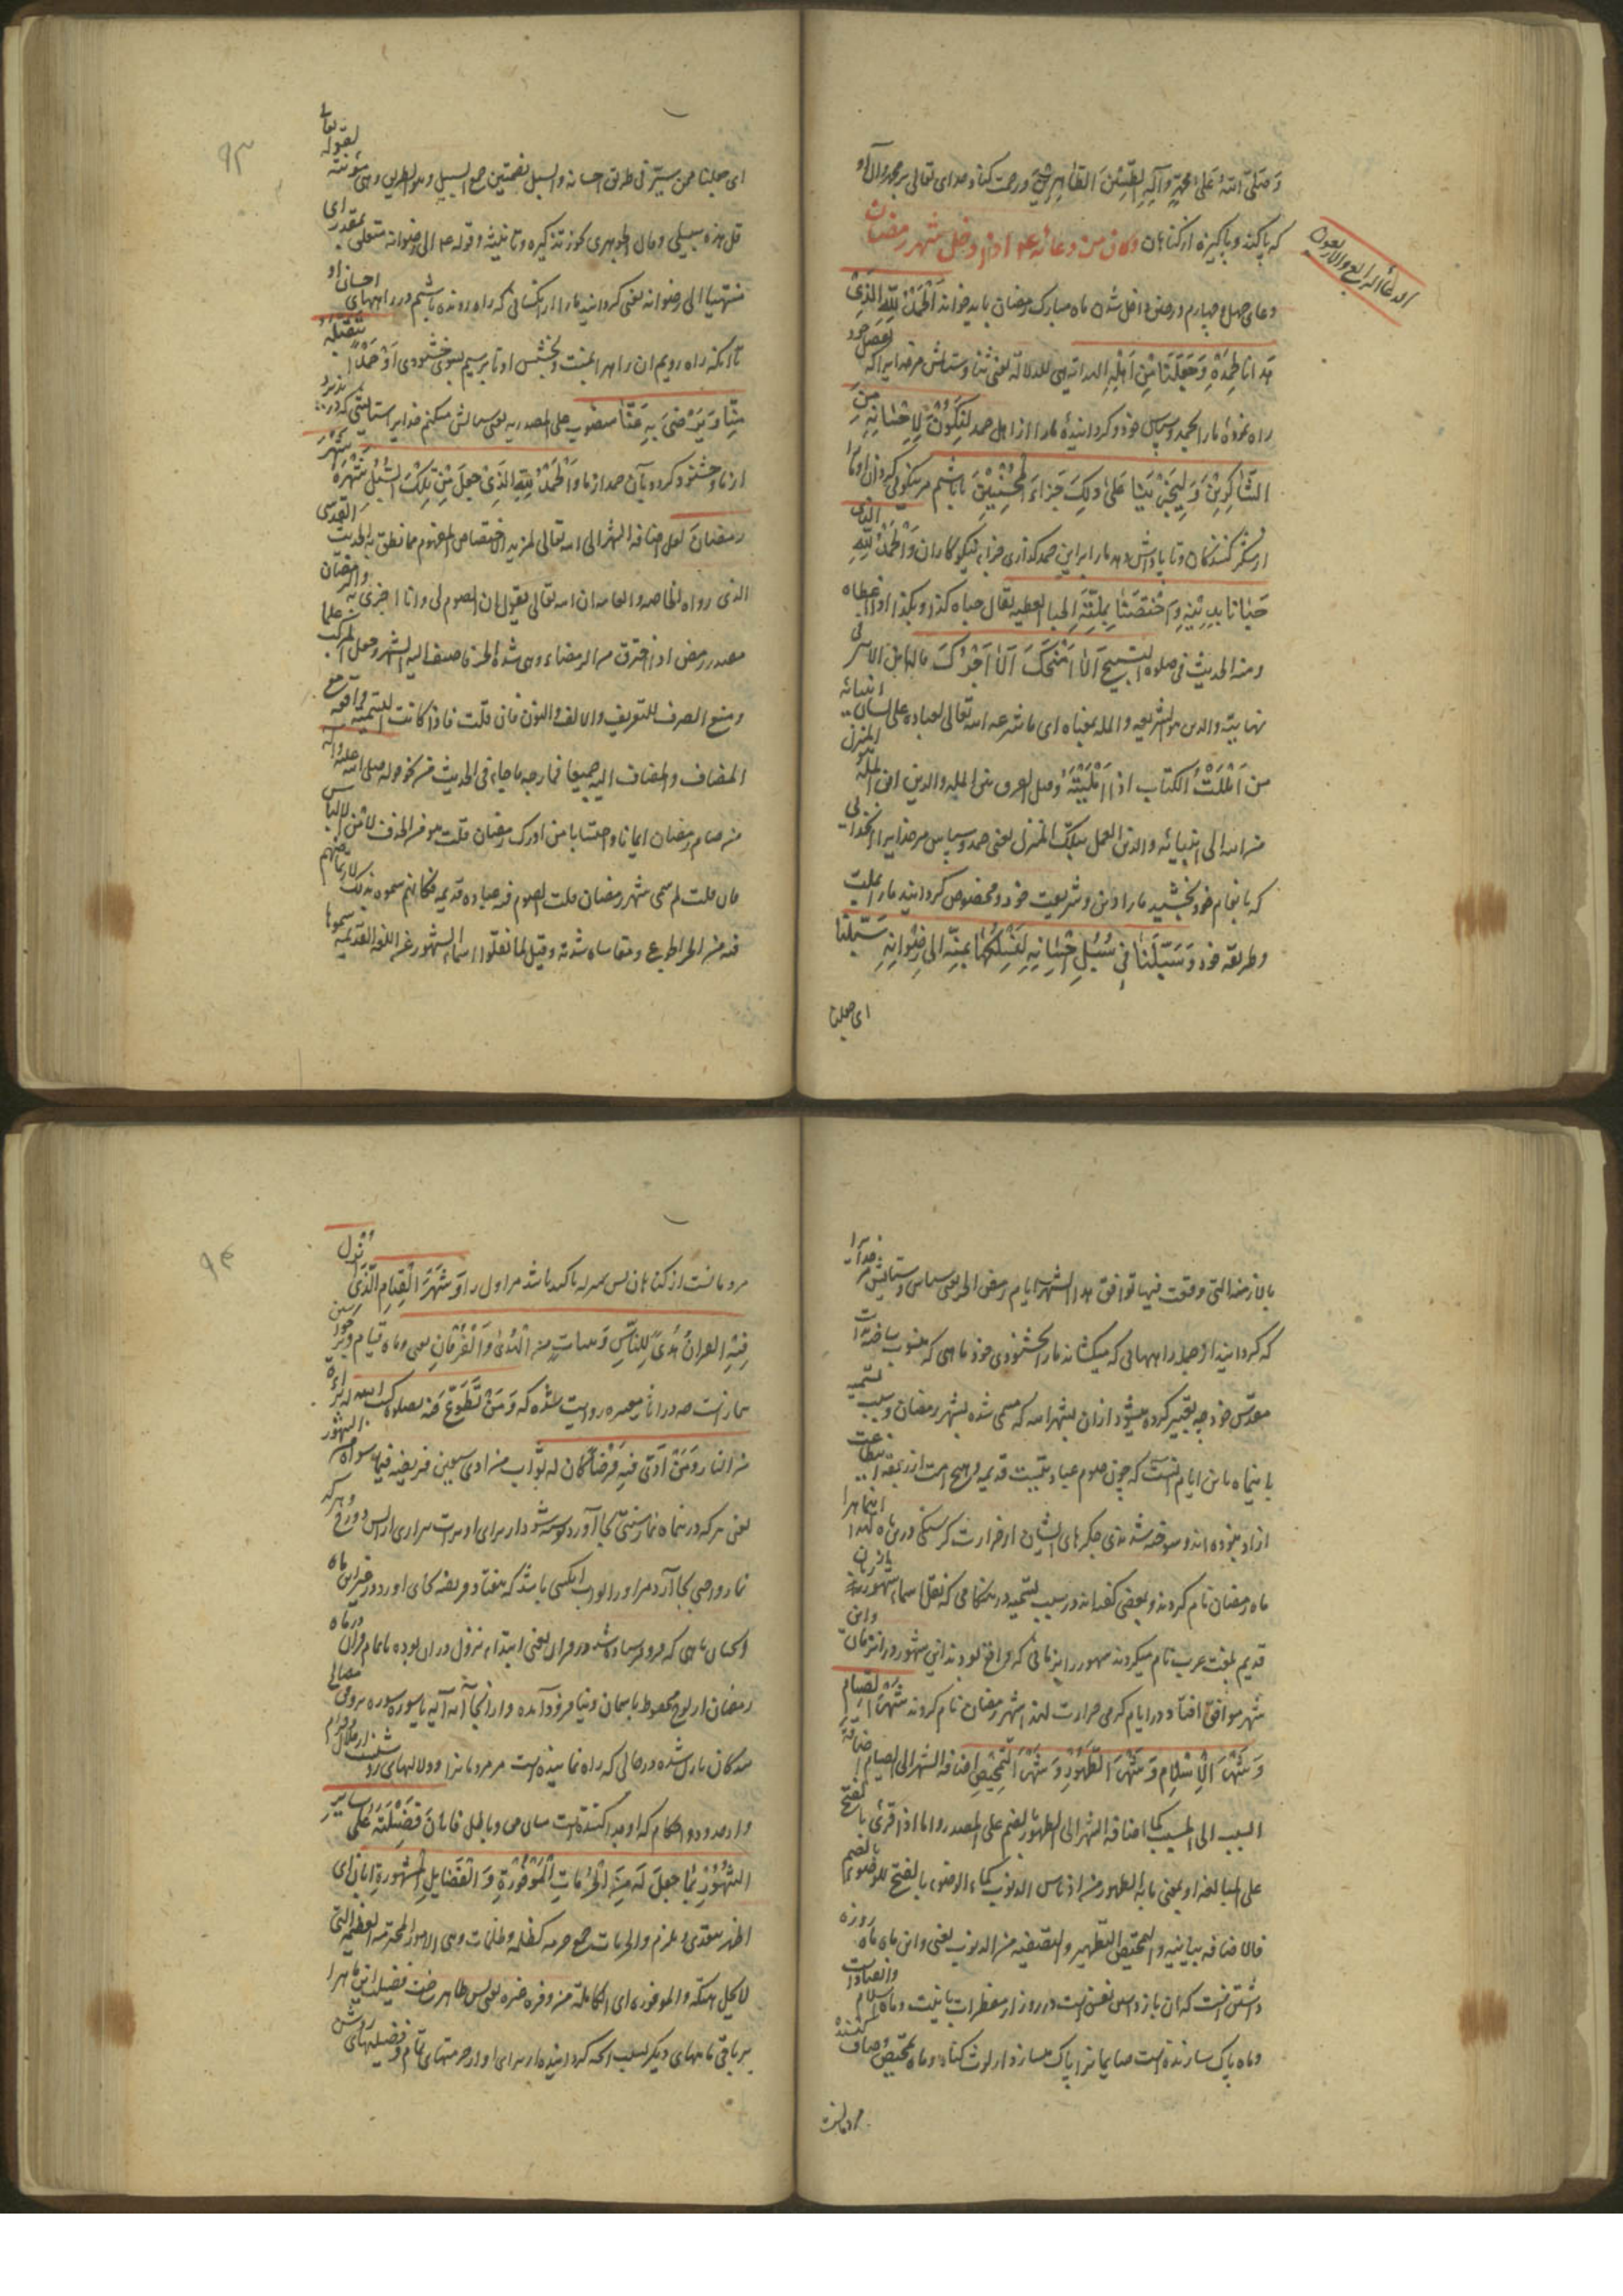 وَصَلَّی اللّٰهُ عَلیٰ مُحَمَّدٍ وَآلِهِ الطَّیِّبِینَ الطَّاهِرِینَ ورحمت کناد خدای تعالی بر محمد وآل او
که پاکند وپاکیزه از کناهان وکان من دعائه ع اذا دخل شهر رمضان
الدعاء الرابع والاربعون
دعای چهل وچهارم در حین داخل شدن ماه مبارک رمضان باید خواند اَلْحَمْدُ لِلّٰهِ الَّذِی
هَدَانَا لِحَمْدِهِ وَجَعَلَنَا مِنْ اَهْلِهِ الهدایه هی الدلالة یعنی ثنا وستایش مر خدایرا که بفضل خود
راه نموده ما را بحمد وسپاس خود وکردانیده ما را از اهل حمد لِنَکُونَ لِاِحْسَانِهِ مِنَ
الشَّاکِرِینَ وَلِیَجْزِیَنَا عَلیٰ ذلِکَ جَزَاءَ الْمُحْسِنِینَ تا باشیم مر نیکوئی کردن او را
از شکر کنندکان وتا پاداش دهد ما را بر این حمد کذاری جزاء نیکوکاران وَالْحَمْدُ لِلّٰهِ الَّذِی
حَبَانَا بِدِینِهِ وَاخْتَصَّنَا بِمِلَّتِهِ الحبا العطیه یقال حباه کذا وبکذا اذا اعطاه
ومنه الحدیث فی صلوة التسبیح اَلَا اَمْنَحُکَ اَلَا اَحْبُوکَ قاله ابن الاثیر فی
نهایته والدین هو الشریعه والمله بمعناه ای ما شرعه الله تعالی لعباده علی لسان انبیائه
من اَمْلَلْتُ الکتاب اذا اَمْلَیْتَهُ وقیل الفرق بین المله والدین ان الملة هو المنزل
من الله الی انبیائه والدین العمل بتلک المنزل یعنی حمد وسپاس مر خدایرا آنخدائی
که بانعام خود بخشید ما را دین وشریعت خود ومخصوص کردانید ما را بملت
وطریقه خود وَسَبَّلَنَا فِی سُبُلِ اِحْسَانِهِ لِنَسْلُکَهَا بِمَنِّهِ اِلی رِضْوَانِهِ سَبَّلَنَا
ای جعلنا
۹۳
ای جعلنا ممن سیّر فی طریق احسانه والسبل بضمتین جمع السبیل وهو الطریق وهی مؤنثه لقوله تعالی
قل هذه سبیلی وقال الجوهری یجوز تذکیره وتانیثه وقوله ع الی رضوانه متعلق بمقدر ای
منتهیا الی رضوانه یعنی کردانید ما را از آنکسانی که راه رونده باشیم در راههای احسان او
تا آنکه راه رویم ان را بمنت وبخشش او تا برسیم بسوی خشنودی او حَمْدًا یَتَقَبَّلُهُ
مِنَّا وَیَرْضیٰ بِهِ عَنَّا منصوب علی المصدریه یعنی سپاس میکنم خدایرا ستایشی که در پذیرد
از ما وخشنود کردد بآن حمد از ما وَالْحَمْدُ لِلّٰهِ الَّذِی جَعَلَ مِنْ تِلْکَ السُّبُلِ شَهْرَهُ شَهْرَ
رَمَضَانَ لعل اضافه الشهر الی الله تعالی لمزید الاختصاص المفهوم مما نطق به الحدیث القدسی
الذی رواه الخاصه والعامه ان الله تعالی یقول ان الصوم لی وانا اجزی به ورمضان
مصدر رمض اذا احترق من الرمضاء وهی شدة الحر فاضیف الیه الشهر وجعل المرکب علما
ومنع الصرف للتعریف والالف والنون فان قلت فاذا کانت التسمیه واقعه مع
المضاف والمضاف الیه جمیعا فما وجه ما جاء فی الحدیث من نحو قوله صلی الله علیه وآله
من صام رمضان ایمانا واحتسابا من ادرک رمضان قلت هو من الحذف لامن الالباس
فان قلت لم سمی شهر رمضان قلت الصوم فیه عباده قدیمه فکانهم سموه بذلک لارتماضهم
فیه من حر الجوع ومقاساه شدته وقیل لما نقلوا اسماء الشهور عن اللغه القدیمه سموها
بالازمنه التی وقعت فیها فوافق هذا الشهر ایام رمض الحر یعنی سپاس وستایش مر خدا را
که کردانید از جمله راههائی که میکشاند ما را بخشنودی خود ماهی که منسوب ساخته بذات
مقدس خود چه تعبیر کرده میشود از ان بشهر الله که مسمی شده بشهر رمضان وسبب تسمیه
باینماه باین ایام آنست که چون صوم عبادتیست قدیمه وهیچ امت از ربقه اطاعت
ازاد نبوده اند وسوخته شده جکرهای ایشان از حرارت کرسنکی در این ماه لهذا اینماه را
ماه رمضان نام کردند وبعضی کفته اند در سبب تسمیه در هنکامی که نقل اسماء شهور از زبان
قدیم بلغت عرب نام میکردند شهور را بزمانی که واقع بودند این شهور در انزمان واین
شهر موافق افتاد در ایام کرمی حرارت لهذا شهر رمضان نام کردند شَهْرَ الصِّیَامِ
وَشَهْرَ الْاِسْلَامِ وَشَهْرَ الطَّهُورِ وَشَهْرَ التَّمْحِیصِ اضافه الشهر الی الصیام اضافة
السبب الی المسبب کما اضافه الشهر الی الطهور بالضم علی المصدر واما اذا قرئ بالفتح
علی المبالغه او بمعنی ما به الطهور من ادناس الذنوب کماء الوضوء بالفتح للوضوء بالضم
فالاضافه بیانیه والتمحیص التطهیر والتصفیه من الذنوب یعنی واین ماه ماه روزه
داشتن است که ان باز داشتن نفس است در روز از مفطرات با نیت وماه اسلام وانقیاد است
وماه پاک سازنده است صایمانرا پاک میسازد از لوث کناه وماه تمحیص وصاف کننده
مردمانست
۹۴
مردمانست از کناهان پس بمنزله تاکید باشد مر اول را وَشَهْرَ الْقِیَامِ الَّذِی اُنْزِلَ
فِیهِ الْقُرْآنُ هُدًی لِلنَّاسِ وَبَیِّنَاتٍ مِنَ الْهُدیٰ وَالْفُرْقَانِ یعنی وماه قیام
نمازست چه در اثار معتبره روایت شده که وَمَنْ تَطَوَّعَ فیه بصلوة کتب الله له براءة
من النار وَمَنْ اَدّیٰ فیه فَرْضًا کان له ثواب من ادی سبعین فریضه فیما سواه من الشهور
یعنی هر که در اینماه نماز سنتی بجا آورد نوشته شود از برای او برات بیزاری از آتش دوزخ وهر که
نماز واجبی بجا آرد مر او را ثواب آنکسی باشد که هفتاد فریضه بجای اورد در غیر این ماه
وآنچنان ماهی که فرو فرستاده شد در او قرآن یعنی ابتداء نزول در ان بوده یا تمام قرآن در ماه
رمضان از لوح محفوظ باسمان دنیا فرود آمده واز آنجا آیه آیه یا سوره سوره بر وفق مصالح
بندکان نازل شده در حالی که راه نماینده است مر مردمانرا ودلالتهای روشنست از حلال وحرام
واز حدود واحکام که او جدا کننده است میان حق وباطل فَاَبَانَ فَضِیلَتَهُ عَلیٰ سَایِرِ
الشُّهُورِ بِمَا جَعَلَ لَهُ مِنَ الْحُرُمَاتِ الْمَوْفُورَةِ وَالْفَضَایِلِ الْمَشْهُورَةِ ابان ای
اظهر یتعدی ویلزم والحرمات جمع حرمه کظلمه وظلمات وهی الامور المحترمه العظیمه التی
لایحل هتکه والموفوره ای الکامله من وفره وفره یعنی پس ظاهر ساخت فضیلت این ماه را
بر باقی ماههای دیکر بسبب آنچه کردانیده از برای او از حرمتهای تمام وفضیلتهای روشن